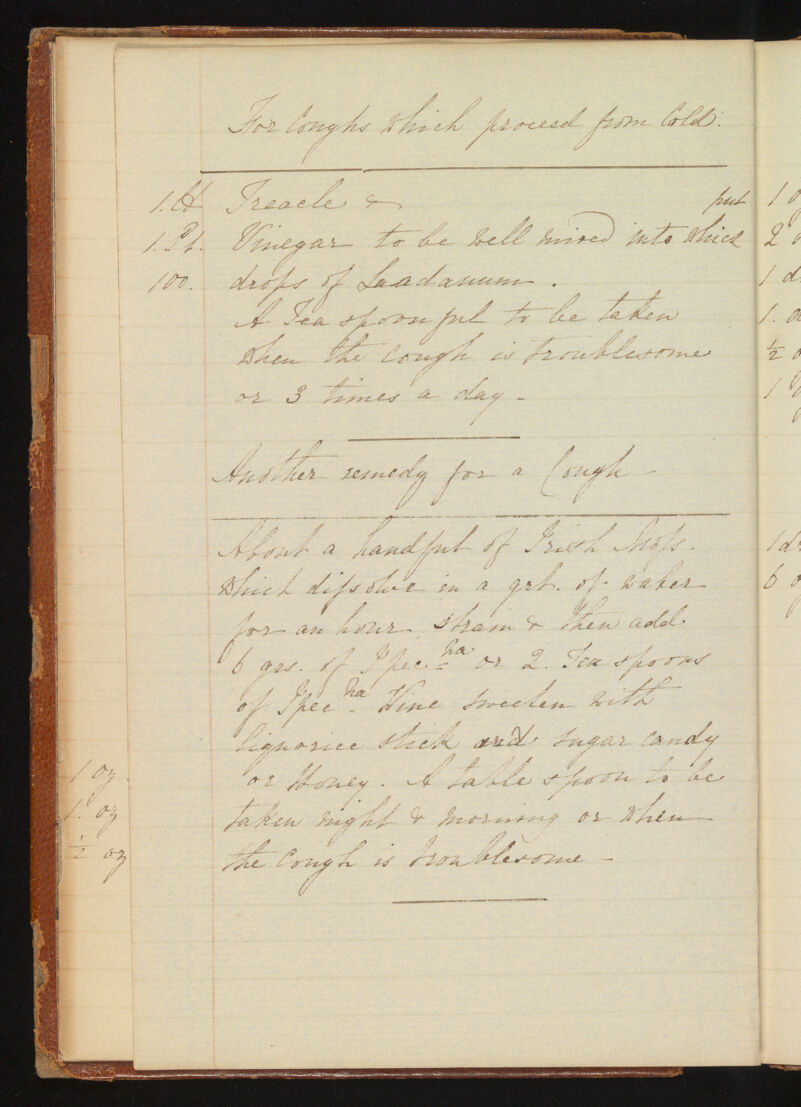 For Coughs which proceed from Cold.
1. lb Treacle & put
1. Pt. Vinegar to be well mixed into which
100. drops of Laadanum.
A Tea spoon ful to be taken
when the cough is troublesome
or 3 times a day -
Another remedy for a Cough -
About a handful of Irish Moss.
which dissolve in a qrt. of water
for an hour, strain & then add
6 grs. of Ipec.ha or 2. Tea spoons
of Ipecha Wine sweeten with
liquorice stick and sugar candy
or Honey. A table spoon to be
taken night & morning or when
the cough is troublesome -
1 oz.
1. oz
½ oz
1
2
1 d
1.
½
1
1 d
6